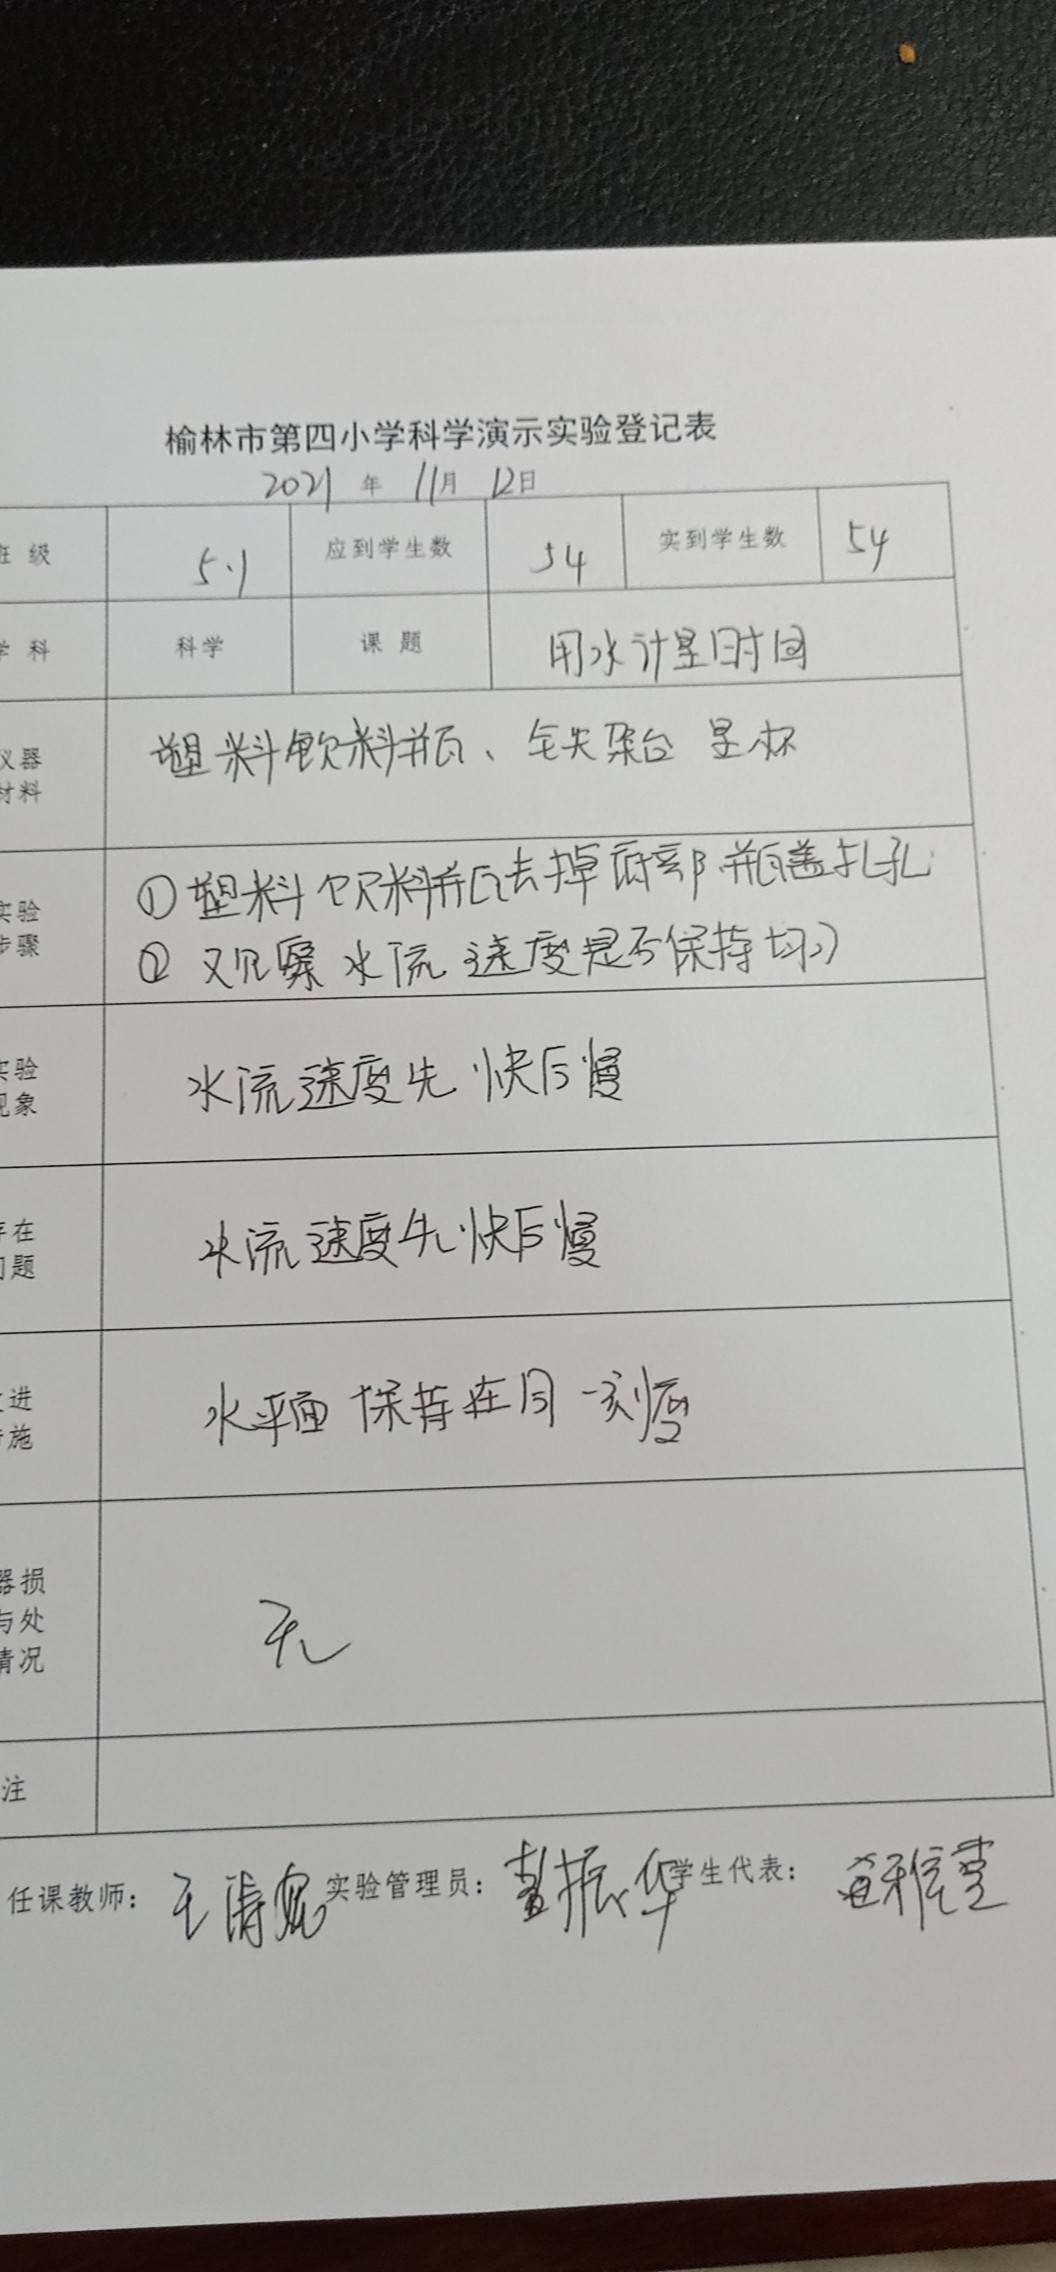 榆林市第四小学科学演示实验登记表
2021 年 11月 12日
班 级 5.1 应到学生数 54 实到学生数 54
学 科 科学 课 题 用水计量时间
仪器 塑料饮料瓶、铁架台 量杯
材料
实验 ①塑料饮料瓶去掉底部 瓶盖扎孔
步骤 ② 观察水流速度是否保持均匀
实验 水流速度先快后慢
现象
存在 水流速度先快后慢
问题
改进 水平面保持在同一刻度
措施
器损 无
与处
情况
注
任课教师： 实验管理员： 振华 学生代表：